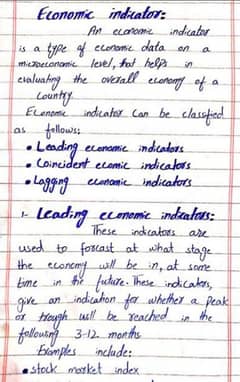 Economic indicator:
An economic indicator
is a type of economic data on a
microeconomic level, that helps in
evaluating the overall economy of a
country.
Economic indicator can be classfied
as follows:
• Leading economic indicators
• Coincident ecomic indicators
• Lagging economic indicators
1- Leading economic indicators:
These indicators are
used to forcast at what stage
the economy will be in, at some
time in the future. These indicators,
give an indication for whether a peak
or trough will be reached in the
following 3-12 months
Examples include:
• stock market index